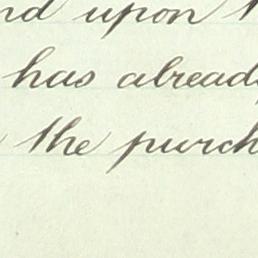 nd upon
has already
the purch